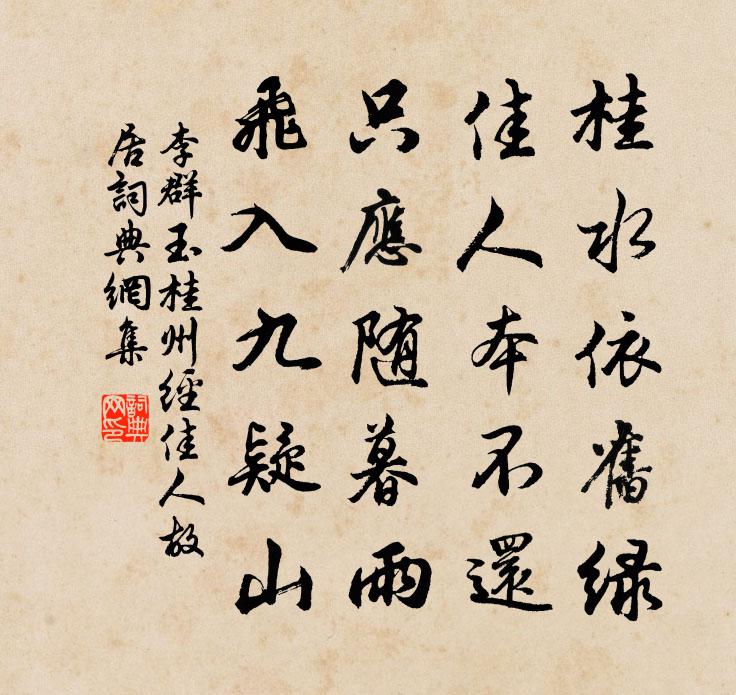 桂水依舊緑
佳人本不還
只應随暮雨
飛入九疑山
李群玉桂州經佳人故
居詞典網集
詞典
网印